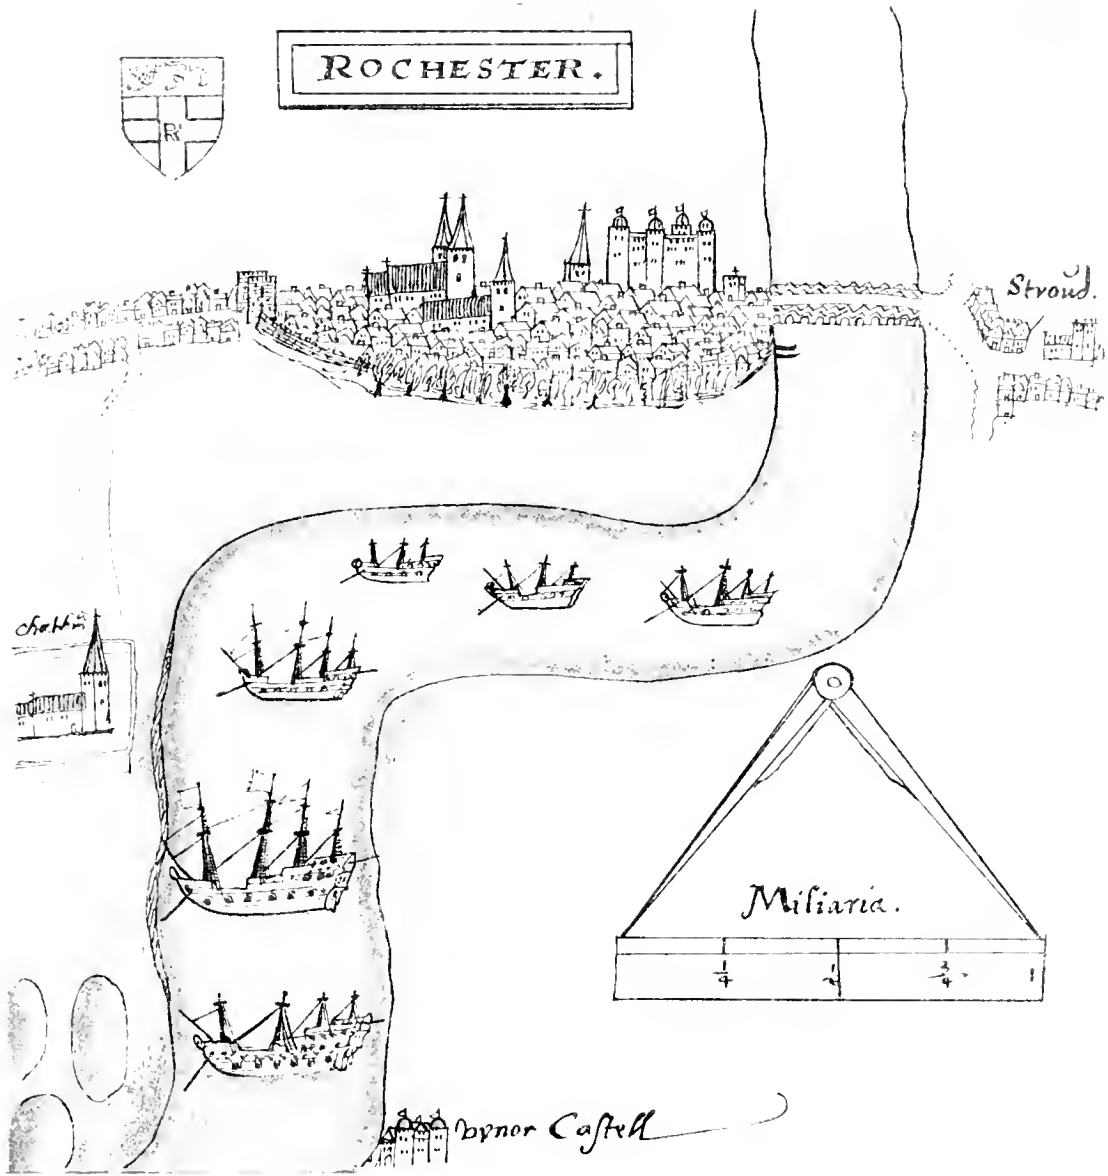 ROCHESTER.
R
Stroud.
Chattm̄
Miliaria.
1/4 1/2 3/4 1
vpnor Castell